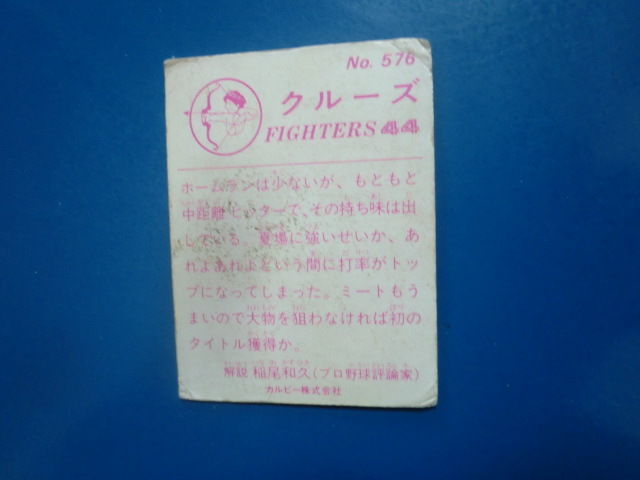 No. 576
クルーズ
FIGHTERS 44
ホームランは少ないが、もともと
中距離ヒッターで、その持ち味は出
している。夏場に強いせいか、あ
れよあれよという間に打率がトッ
プになってしまった。ミートもう
まいので大物を狙わなければ初の
タイトル獲得か。
解説 稲尾和久(プロ野球評論家)
カルビー株式会社